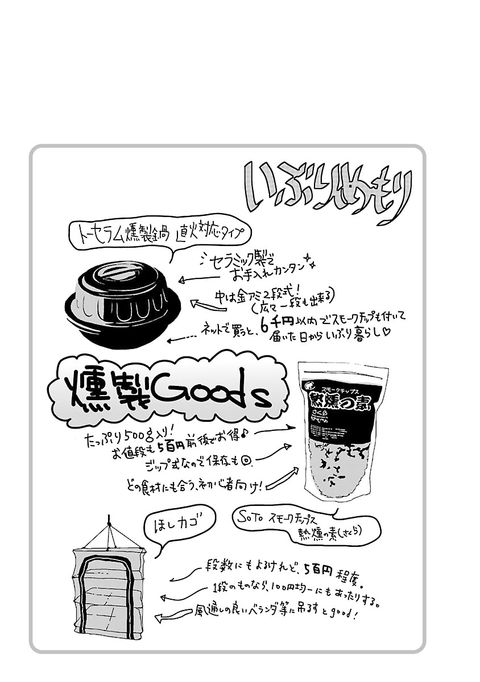 いぶりめもり
トーセラム燻製鍋 直火対応タイプ
セラミック製で
お手入れカンタン
中は金アミ2段式!
(広て一段も出来る)
ネットで買うと、6千円以内でスモークチップも付いて
届いた日からいぶり暮らし♡
燻製Goods
たっぷり500g入り!
お値段も5百円前後でお得♪
ジップ式なので保存も◎
どの食材にも合う、初心者向け!
スモークチップス
熱燻の素
さくら
SOTO スモークチップス
熱燻の素(さくら)
ほしカゴ
段数にもよるけれど、5百円程度。
1段のものなら、100円均一にもあったりする。
風通しの良いベランダ等に吊るすとgood!